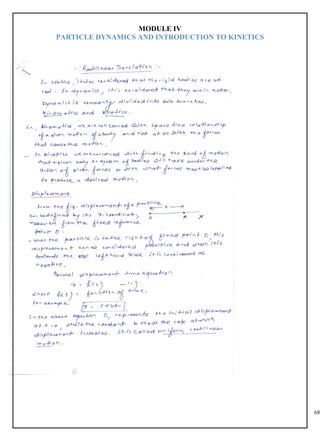 MODULE IV
PARTICLE DYNAMICS AND INTRODUCTION TO KINETICS
:- Rectilinear Translation :-
In statics, it is considered that the rigid bodies are at
rest. In dynamics, it is considered that they are in motion.
Dynamics is commonly divided into two branches.
Kinematics and kinetics.
In, kinematics we are concerned with space time relationship
of a given motion of a body and not at all with the forces
that cause the motion.
- In kinetics we are concerned with finding the kind of motion
that a given body or system of bodies will have under the
action of given forces or with what forces must be applied
to produce a desired motion.
Displacement
From the fig. displacement of a particle
can be defined by its x-coordinate,
measured from the fixed reference
point O.
x
O
X
- When the particle is to the right of fixed point O, this
displacement can be considered positive and when it is
towards the left hand side it is considered as
negative.
General displacement time equation
x = f(t) — (1)
where f(t) = function of time.
for example
x = c + bt
In the above equation C, represents the initial displacement
at t=0, while the constant b shows the rate at which
displacement increases. It is called uniform rectilinear
motion.
68